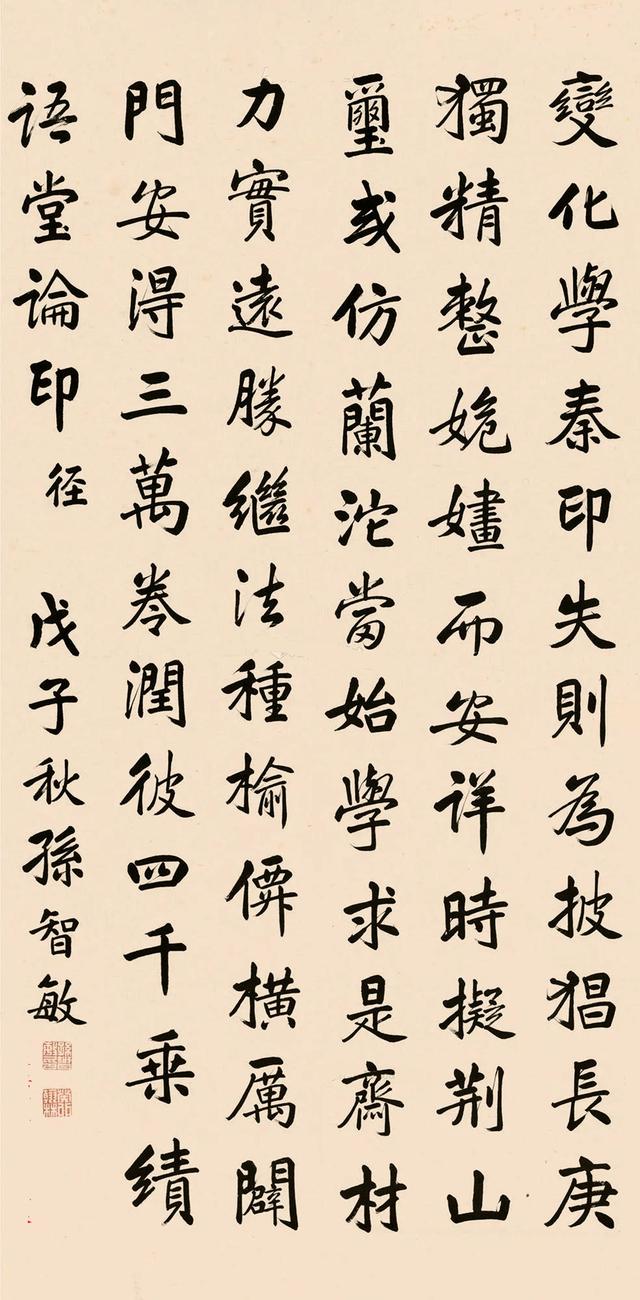 變化學秦印失則為披猖長庚
獨精整姽嫿而安詳時擬荆山
璽或仿蘭沱當始學求是齋材
力實遠勝繼法種榆僊橫厲闢
門安得三萬卷潤彼四千乘績
語堂論印 径 戊子秋孫智敏